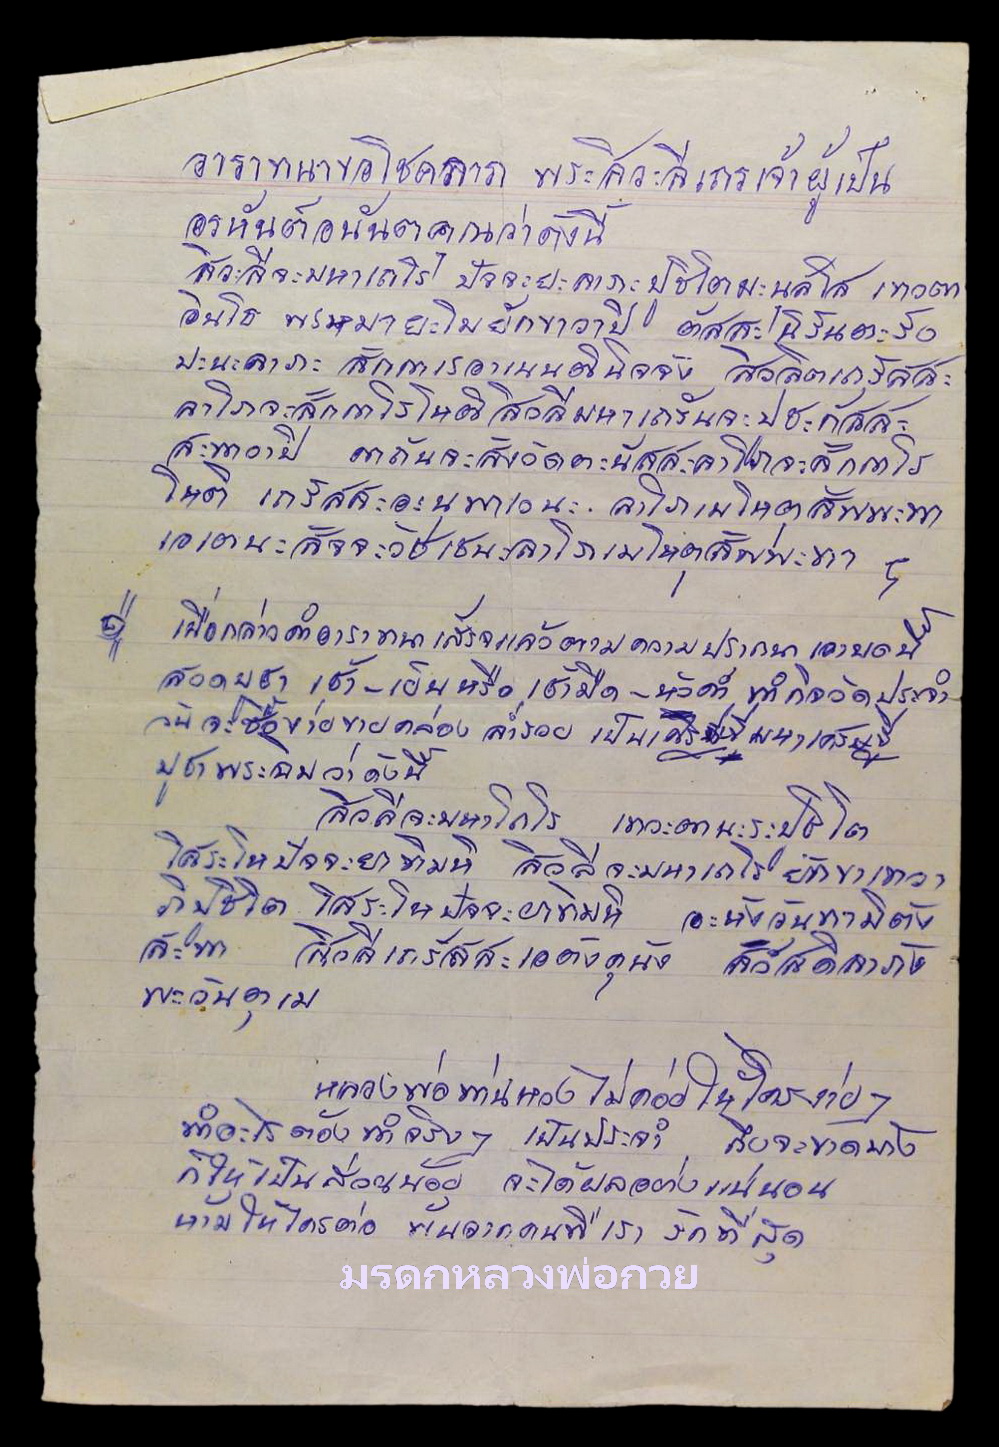 อาราทนาขอโชคลาภ พระสีวะลีเถรเจ้าผู้เป็น
อรหันต์อนันตคุณว่าดังนี้
สีวะลีจะมหาเถโร ปัจจะยะลาภะปูชิโตมะนุสโส เทวตา
อินโธ พรหมายะโมยักขาวาปี ตัสสะ นิรันตะรัง
ปะนะลาภะ สักการเอาเนนตินิจจัง สีวลิตเถรัสสะ
ลาโภจะสักกาโรโหติสีวลีมหาเถรันจะปูชะกัสสะ
สะทาวาปี ตาถันจะสังวัดตะนัสสะลาโภจะสักกาโร
โหติ เถรัสสะอะนุพาเวนะ ลาโภเมโหตุสัพพะทา
เอเตนะสัจจะวัชเชนะลาโภเมโหตุสัพพะทา
๑ เมื่อกล่าวคำอาราทนาเสร็จแล้วตามความปรารถนา เอาบทนี้
สวดบูชา เช้า-เย็นหรือ เช้ามืด-หัวค่ำ ทำกิจวัดประจำ
วันจะซื้อง่ายขายคล่อง ล่ำรวย เป็นเศรษฐีมหาเศรษฐี
บูชาพระฉิมว่าดังนี้
สีวลีจะมหาโถโร เทวะตานะระปูชิโต
โสระโหปัจจะยาทิมหิ สีวลีจะมหาเถโร ยักขาเทวา
ภิปูชิโต โสระโหปัจจะยาทิมหิ อะหังวันทามิตัง
สะทา สีวลีเถรัสสะเอตังคุนัง สวัสดีลาภัง
พะวันตุเม
หลวงพ่อท่านหวงไม่ค่อยให้ใครง่ายๆ
ทำอะไรต้องทำจริงๆ เป็นประจำ ถึงจะขาดบ้าง
ก็ให้เป็นส่วนน้อย จะได้ผลอย่างแน่นอน
ห้ามให้ใครต่อ พ้นจากคนที่เรา รักที่สุด
มรดกหลวงพ่อกวย